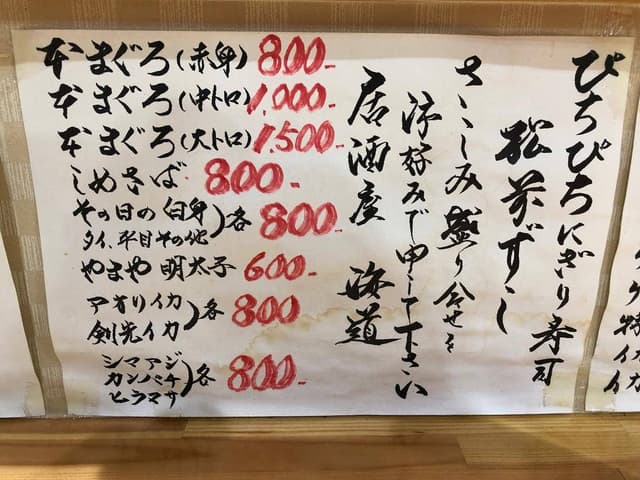 ぴちぴちにぎり寿司
松前ずし
さしみ盛り合せを
御好みで申して下さい
居酒屋 海道
本まぐろ(赤身) 800-
本まぐろ(中トロ) 1,000-
本まぐろ(大トロ) 1,500-
しめさば 800-
その日の(白身)各 800-
タイ、平目その他
やまや 明太子 600-
アオリイカ
剣先イカ)各 800
シマアジ
カンパチ)各 800-
ヒラマサ